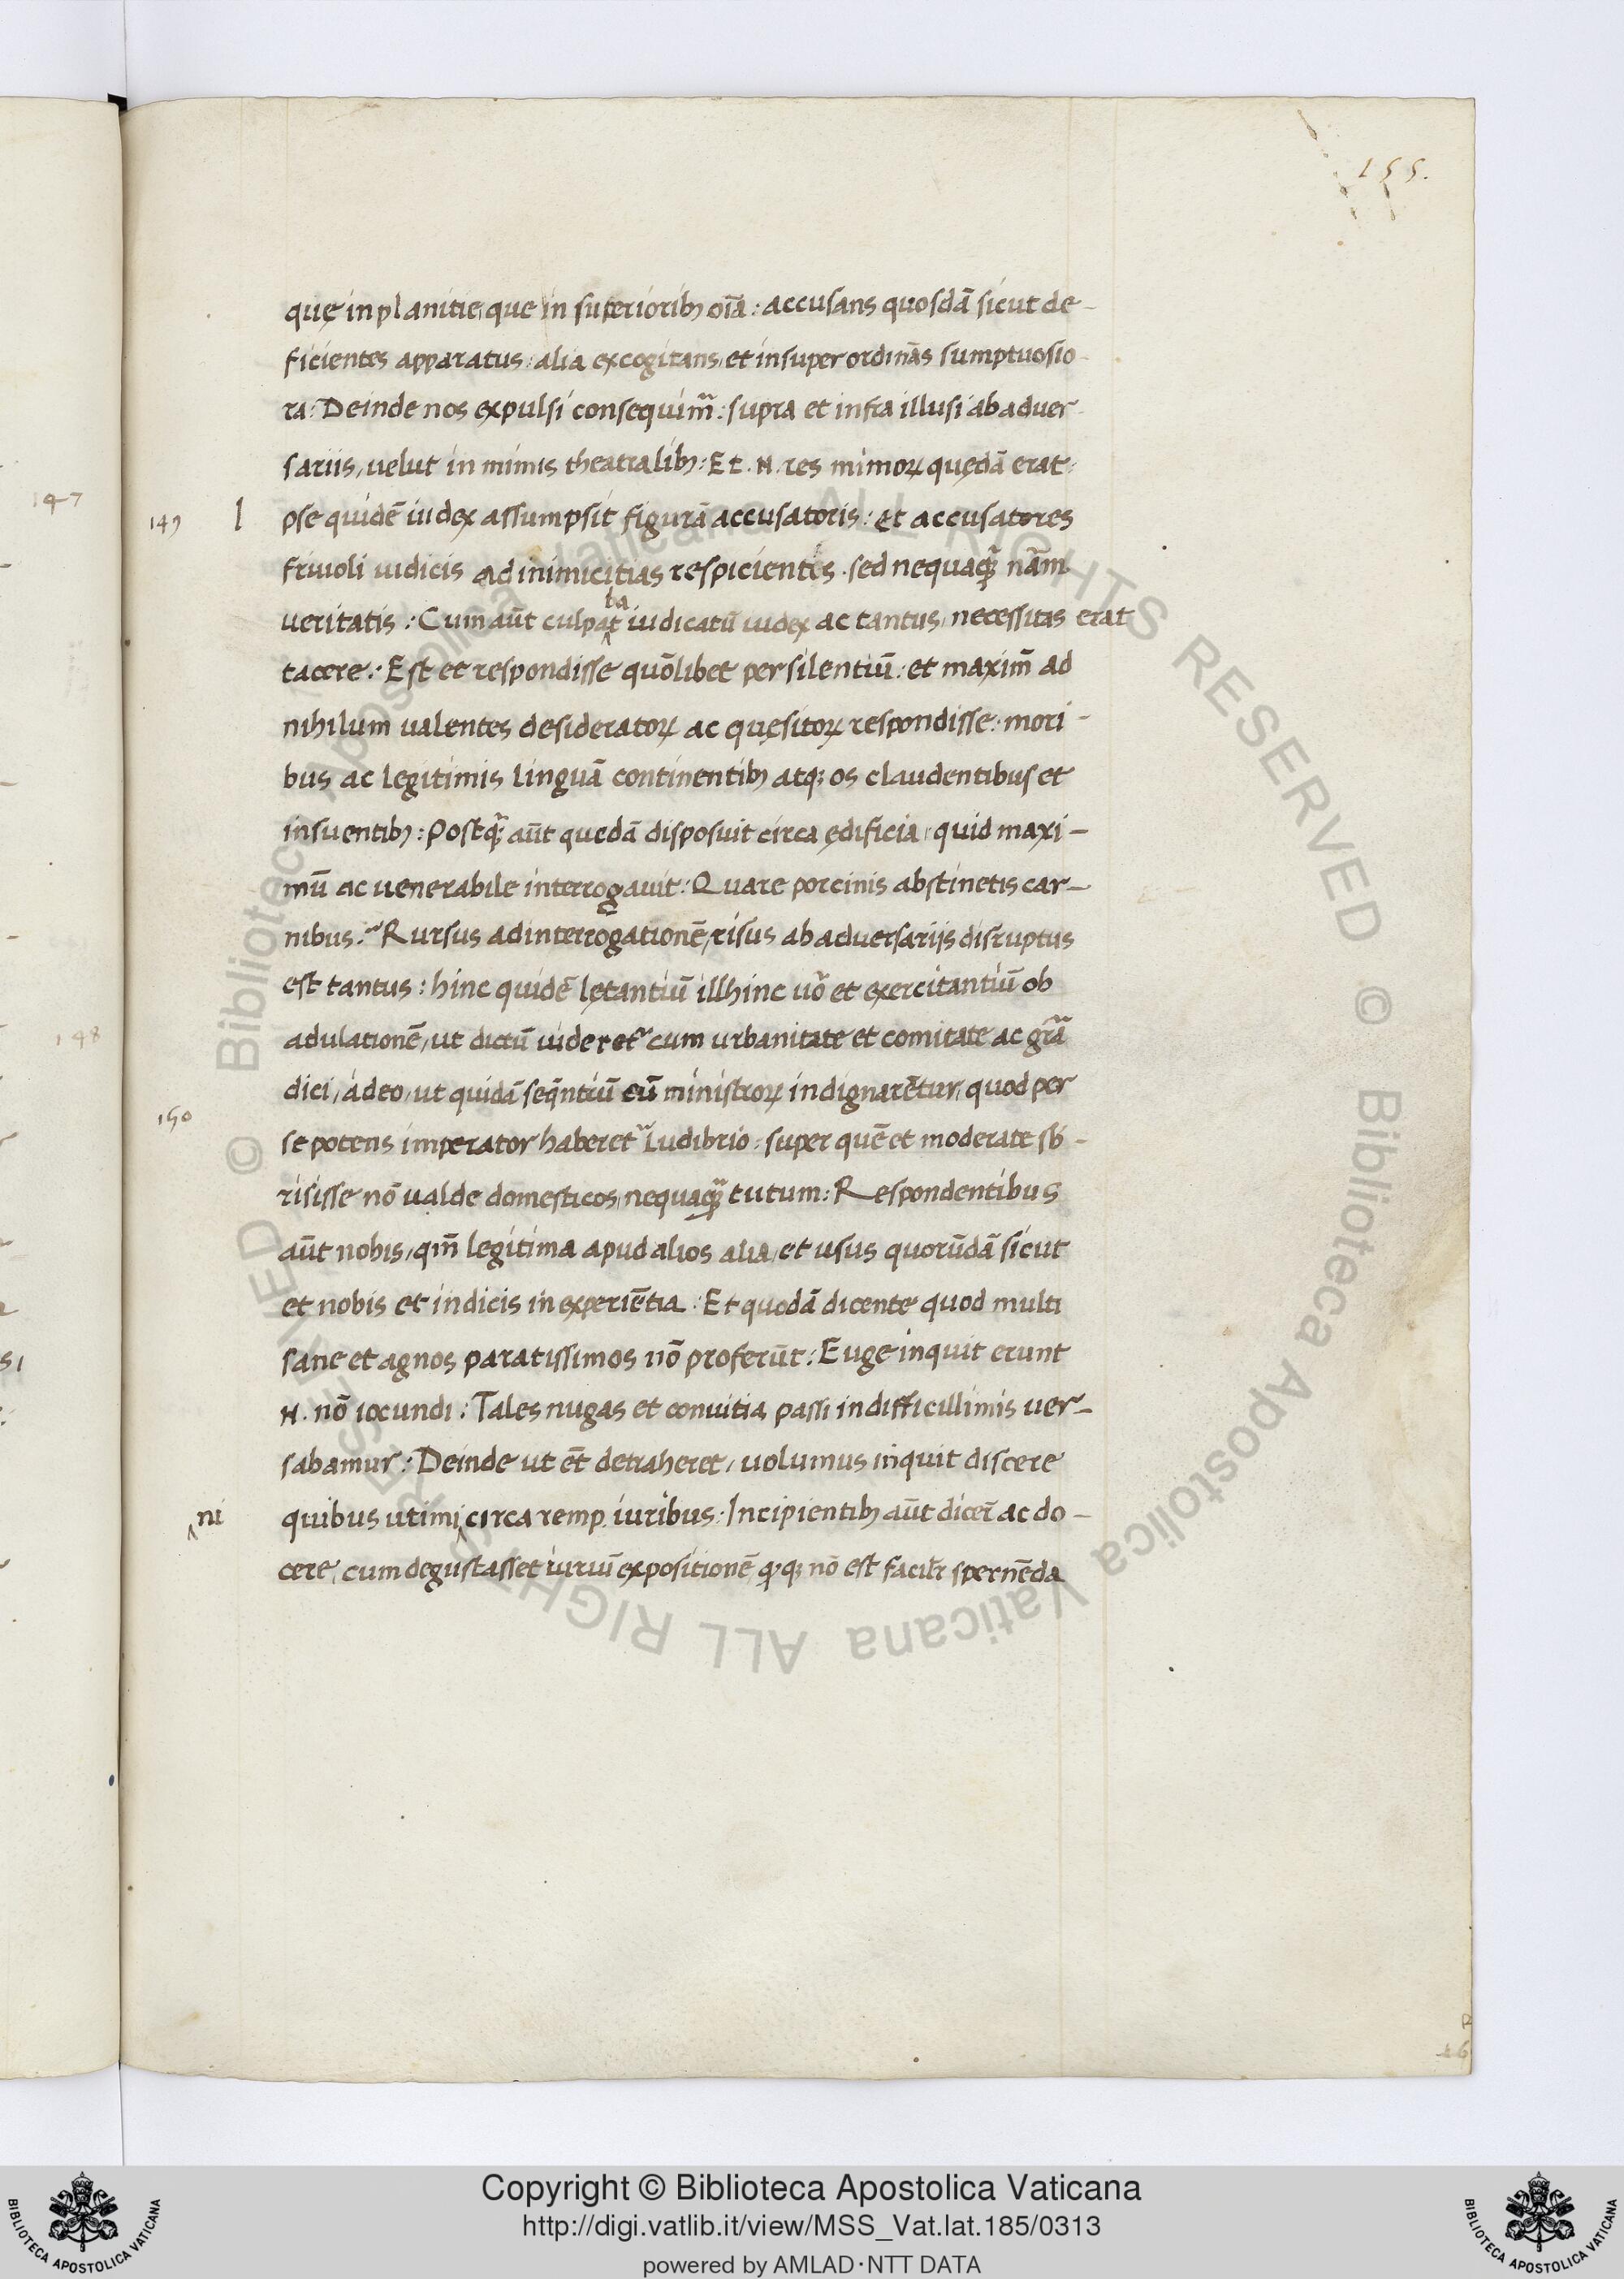 155.
quę in planitie, que in superiorib; oīa: accusans quosdā sicut de-
ficientes apparatus: alia excogitans, et insuper ordinās sumptuosio-
ra: Deinde nos expulsi consequimr̄: supra et infra illusi ab aduer-
sariis, uelut in mimis theatralib;: Et .N. res mimoꝝ quędā erat:
147
149
I
pse quidē iudex assumpsit figurā accusatoris: et accusatores
friuoli iudicis ad inimicitias respicientis. sed nequaꝗ̄ nām
ueritatis: Cum aūt culpat iudicatū iudex ac tantus, necessitas erat
ba
tacere: Est et respondisse quōlibet per silentiū: et maxim̄ ad
nihilum ualentes desideratoꝝ ac quęsitoꝝ respondisse: mori-
bus ac legitimis linguā continentib; atq; os claudentibus et
insuentib;: Postꝗ̄ aūt quedā disposuit circa ędificia, quid maxi-
mū ac uenerabile interrogauit: Quare porcinis abstinetis car-
nibus: Rursus ad interrogationē, risus ab aduersarijs disruptus
est tantus: hinc quidē lętantiū illhinc uō et exercitantiū ob
148
adulationē, ut dictū uideret᷑ cum urbanitate et comitate ac gr̄a
dici, adeo, ut quidā seq̄ntiū eū ministroꝝ indignarētur, quod per
150
se potens imperator haberet᷑ Ludibrio: super quē et moderate sb̄-
risisse nō ualde domesticos, nequaꝗ̄ tutum: Respondentibus
aūt nobis, qm̄ legitima apud alios alia, et usus quorūdā sicut
et nobis et indicis in experiētia: Et quodā dicente quod multi
sane et agnos paratissimos nō proferūt: Euge inquit erunt
.N. nō iocundi: Tales nugas et conuitia passi in difficillimis uer-
sabamur: Deinde ut et̄ detraheret, uolumus inquit discere
ni
quibus utimi circa remp. iuribus: Incipientib; aūt dicer̄ ac do-
cere, cum degustasset iuriū expositionē q; q; nō est facilr̄ spernēda
R
26
Copyright © Biblioteca Apostolica Vaticana
http://digi.vatlib.it/view/MSS_Vat.lat.185/0313
powered by AMLAD · NTT DATA
BIBLIOTECA APOSTOLICA VATICANA
BIBLIOTECA APOSTOLICA VATICANA
© Biblioteca Apostolica Vaticana ALL RIGHTS RESERVED
© Biblioteca Apostolica Vaticana ALL RIGHTS RESERVED